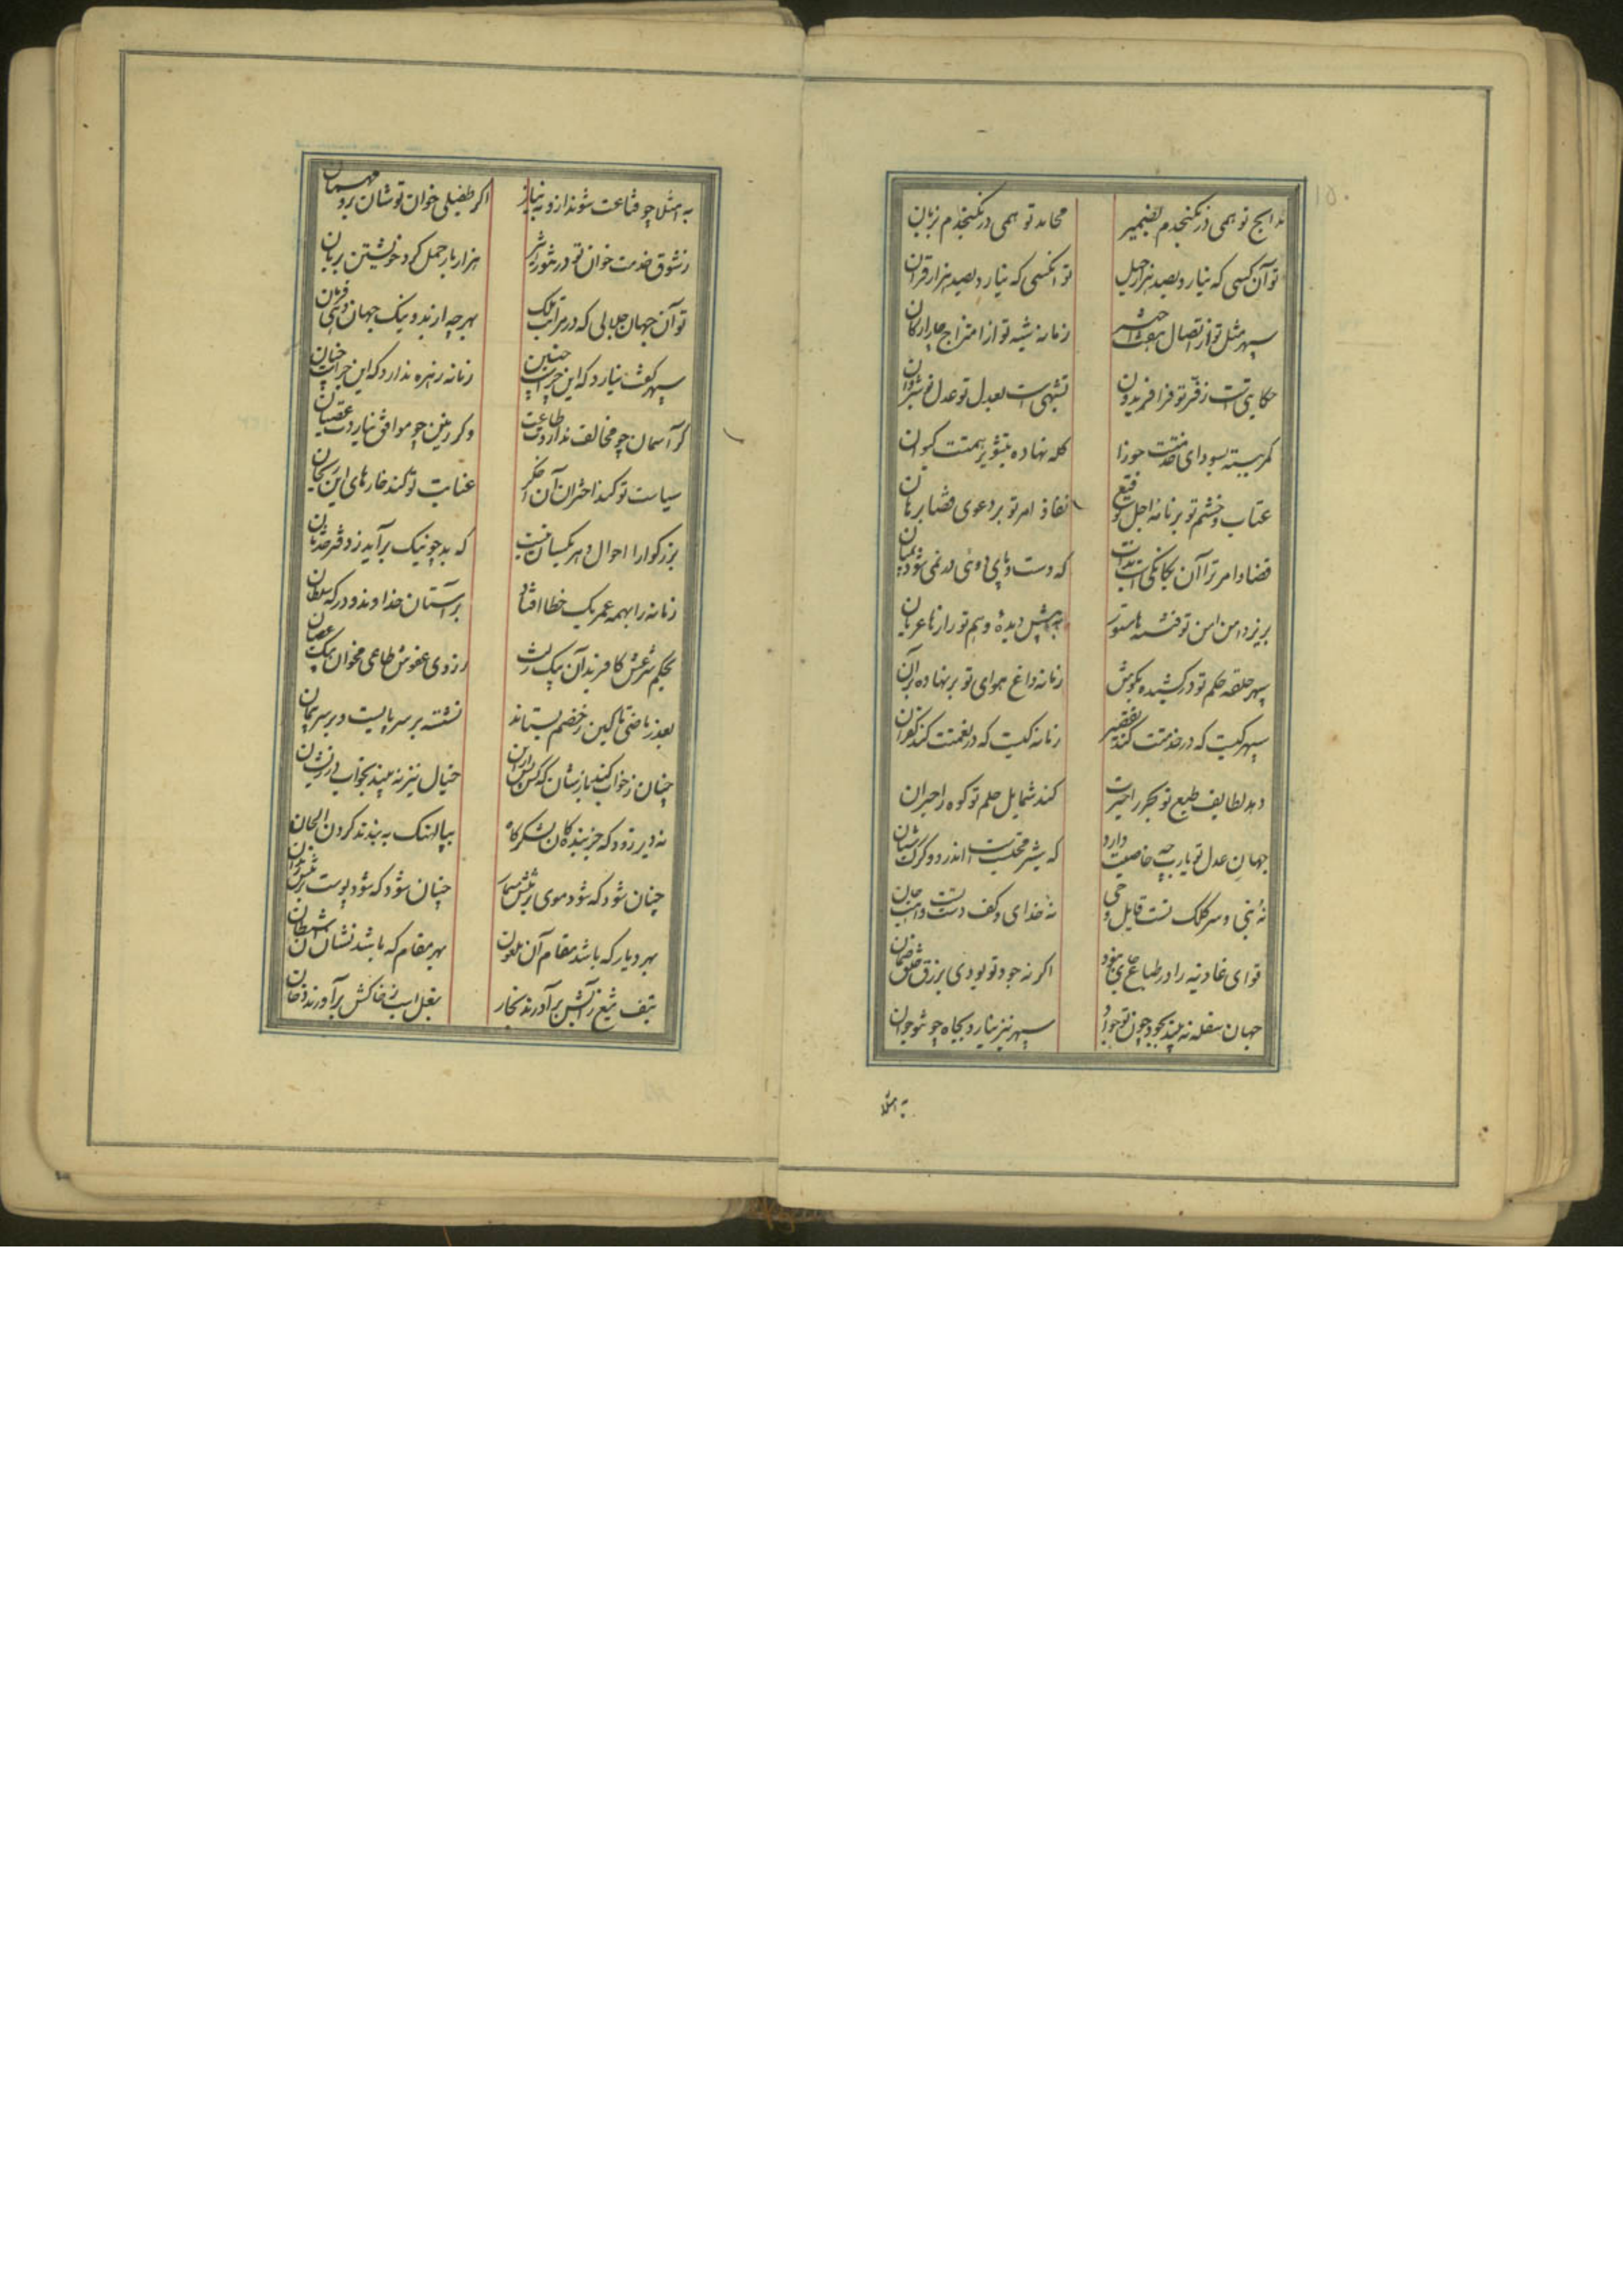 مدایح تو همی در نکنجدم بضمیر محامد تو همی در نکنجدم بزبان
تو آن کسی که نیارد بصد هزار حیل تو آنکسی که نیارد بصد هزار قران
سپهر مثل تو از اتصال هفت اختر زمانه شبه تو از امتزاج چار ارکان
حکایتی است ز فر تو فر افریدون تشبهی است بعدل تو عدل نوشروان
کمر ببسته بسودای خدمتت جوزا کله نهاده بتشویر همتت کیوان
عتاب و خشم تو بر نامه اجل توقیع نفاذ امر تو بر دعوی قضا برهان
قضا و امر ترا آن یکانکی است بذات که دست و پای دوئی در نمی شود بمیان
بزیر دامن امن تو فتنه ها مستور به پیش دیده وهم تو رازها عریان
سپهر حلقه حکم تو در کشیده بکوش زمانه داغ هوای تو بر نهاده بران
سپهر کیست که در خدمتت کند تقصیر زمانه کیست که در نعمتت کند کفران
دهد لطایف طبع تو بحر را حیرت کند شمایل حلم تو کوه را حیران
جهان عدل تو یارب چه خاصیت دارد که شیر محتسب است اندرو و کرک شبان
نه نبی و سر کلک تست قابل وحی نه خدای و کف دست تست واهب جان
قوای غادیه را در طباع جای نبود اکر نه جود تو بودی برزق خلق ضمان
جهان سفله نه بیند بجود چون تو جواد سپهر نیز نیارد بجاه چو تو جوان
به امتلا
به امتلا چو قناعت شوند ازو به نیاز اکر طفیلی خوان تو شان برد مهمان
ز شوق خدمت خوان تو در تنور اثیر هزار بار حمل کرد خویشتن بریان
تو آن جهان جلالی که در مراتب ملک بهر چه ارند و نیک جهان دهی فرمان
سپهر کفت نیارد که این چراست چنین زمانه زهره ندارد که این چراست چنان
کر آسمان چو مخالف ندارد طاعت وکر زمین چو موافق نیاردت عصیان
سیاست تو کند اختران آن اخکر عنایت تو کند خارهای این ریحان
بزرکوارا احوال دهر یکسان نیست که بد چو نیک برآید ز دفتر حدثان
زمانه را بهمه عمر یک خطا افتاد بر آستان خداوند و درکه سلطان
بحکم شرعش کافر بدان یک زلت ز روی عفوش طاعی مخوان بیک عصیان
بعذر ماضی تا کین ز خصم بستاند نشسته بر سر پایست و بر سر پیمان
چنان ز خواب کند بازشان که کس پس ازان خیال نیز نه بیند بخواب در زیشان
نه دیر زود که خربندکان لشکرکاه بپالهنک به بندند کردن الخان
چنان شود که شود موی بر تنش مسمار چنان شود که شود پوست بر تنش زندان
بهر دیار که باشد مقام آن ملعون بهر مقام که باشد نشان آن شیطان
بتف تیغ ز آتش برآورند بخار بنعل اسب ز خاکش برآورند دخان